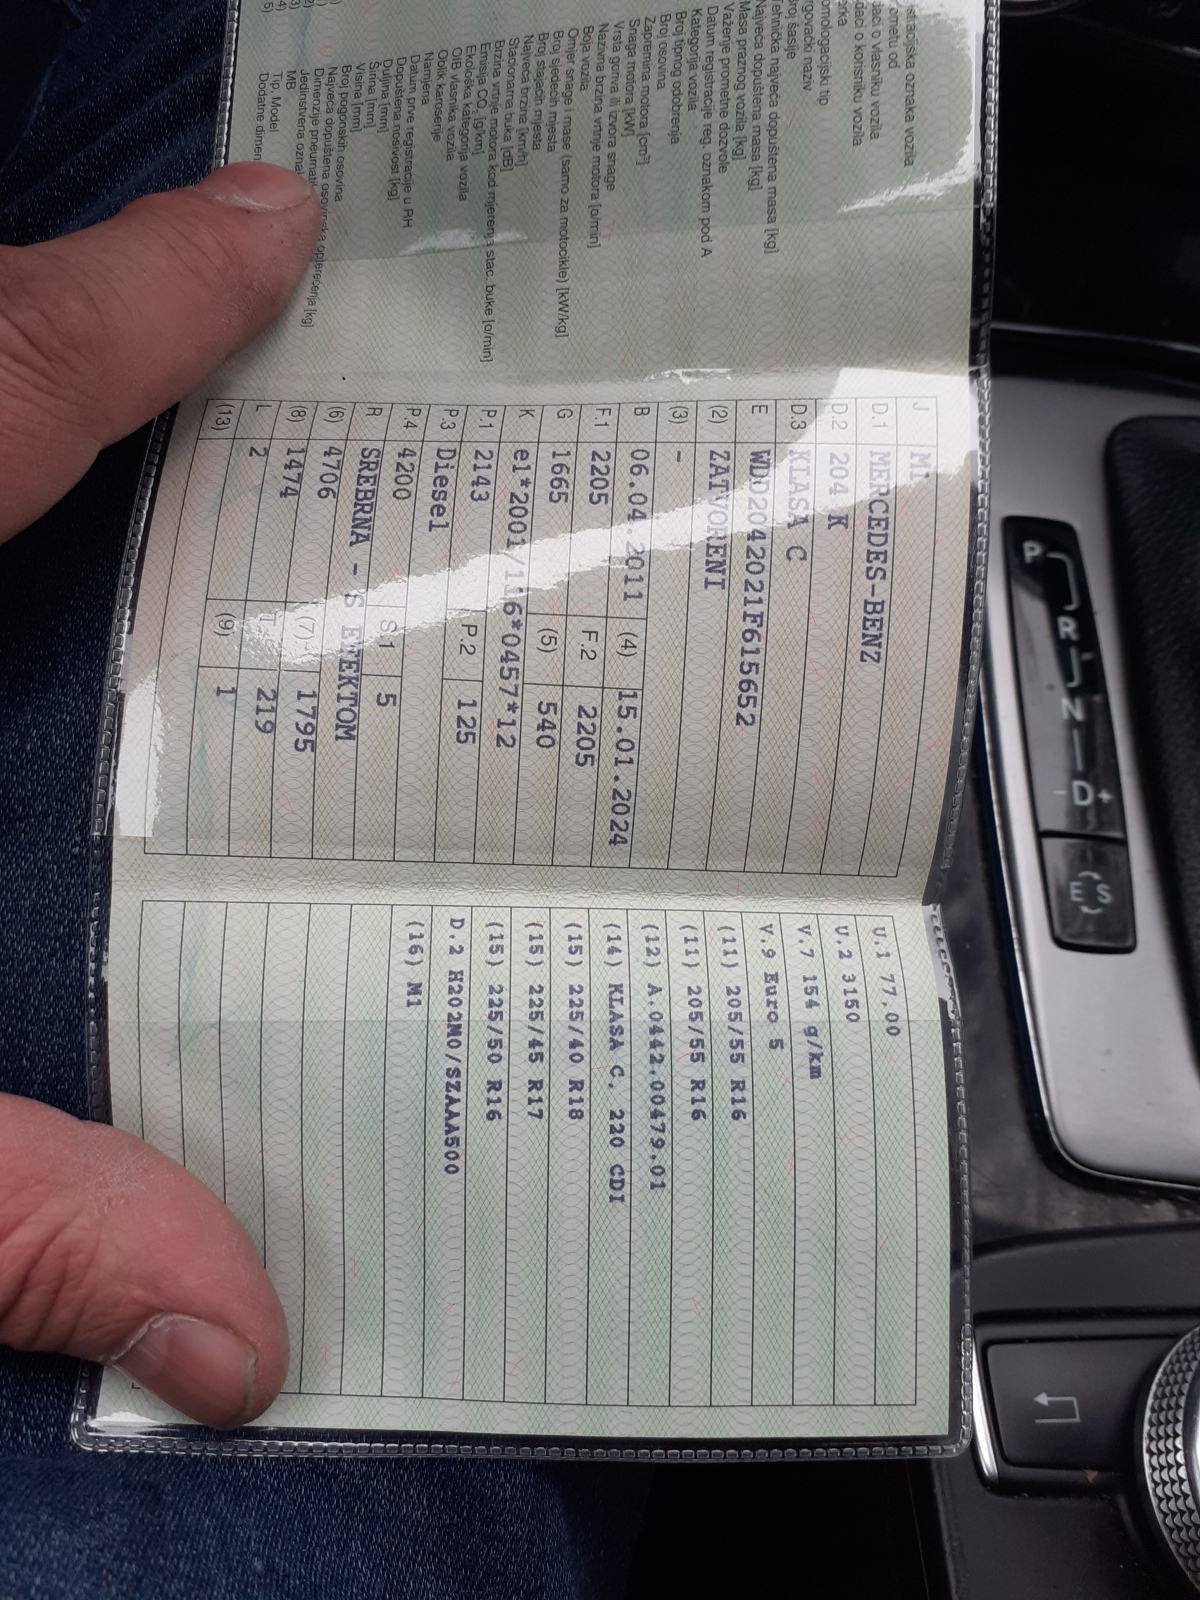 istracijska oznaka vozila
ometu od
daci o vlasniku vozila
daci o korisniku vozila
rka
omologacijski tip
rgovački naziv
roj šasije
ehnička najveća dopuštena masa [kg]
Najveća dopuštena masa [kg]
Masa praznog vozila [kg]
Važenje prometne dozvole
Datum registracije reg. oznakom pod A
Kategorija vozila
Broj tipnog odobrenja
Broj osovina
Zapremina motora [cm³]
Snaga motora [kW]
Vrsta goriva ili izvora snage
Nazivna brzina vrtnje motora [o/min]
Boja vozila
Omjer snage i mase (samo za motocikle) [kW/kg]
Broj sjedećih mjesta
Broj stajaćih mjesta
Najveća brzina [km/h]
Stacionarna buka [dB]
Brzina vrtnje motora kod mjerenja stac. buke [o/min]
Emisija CO₂ [g/km]
Ekološka kategorija vozila
OIB vlasnika vozila
Oblik karoserije
Namjena
Datum prve registracije u RH
Dopuštena nosivost [kg]
Duljina [mm]
Širina [mm]
Visina [mm]
Broj pogonskih osovina
Najveća dopuštena osovinska opterećenja [kg]
Dimenzije pneumati
Jedinstvena oznak
MB
Tip, Model
Dodatne dimen
J M1
D.1 MERCEDES-BENZ
D.2 204 K
D.3 KLASA C
E WDD2042021F615652
(2) ZATVORENI
(3) -
B 06.04.2011 (4) 15.01.2024
F.1 2205 F.2 2205
G 1665 (5) 540
K e1*2001/116*0457*12
P.1 2143 P.2 125
P.3 Diesel
P.4 4200 S.1 5
R SREBRNA - S EFEKTOM
(6) 4706 (7) 1795
(8) 1474 T 219
L 2 (9) 1
(13)
U.1 77.00
U.2 3150
V.7 154 g/km
V.9 Euro 5
(11) 205/55 R16
(11) 205/55 R16
(12) A.0442.00479.01
(14) KLASA C, 220 CDI
(15) 225/40 R18
(15) 225/45 R17
(15) 225/50 R16
D.2 H202M0/SZAAA500
(16) M1
P
R
N
- D +
E S